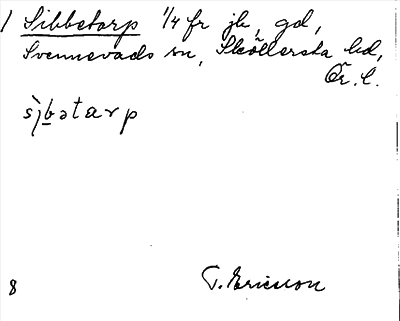 1 Sibbetorp 1/4 fr jb, gd,
Svennevads sn, Sköllersta hd,
Ör. l.
sìbətarp
8 T. Ericsson